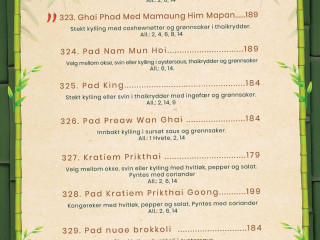 All.: 2, 6, 14
323. Ghai Phad Med Mamaung Him Mapan.....189
Stekt kylling med cashewnøtter og grønnsaker i thaikrydder.
All.: 2, 4, 6, 8, 14
324. Pad Nam Mun Hoi..........................189
Velg mellom okse, svin eller kylling i oystersaus, thaikrydder og grønnsaker
All.: 6, 14.
325. Pad King....................................184
Stekt kylling eller svin i thaikrydder med ingefær og grønnsaker.
All.: 2, 14, 9
326. Pad Preaw Wan Ghai .................184
Innbakt kylling i sursøt saus og grønnsaker.
All.: 1 Hvete, 2, 14
327. Kratiem Prikthai .........................179
Velg mellom okse, svin eller kylling med hvitløk, pepper og salat.
Pyntes med coriander
All.: 2, 6, 14
328. Pad Kratiem Prikthai Goong.........199
Kongereker med hvitløk, pepper og salat. Pyntes med coriander
All.: 2, 6, 14
329. Pad nuae brokkoli ....................184